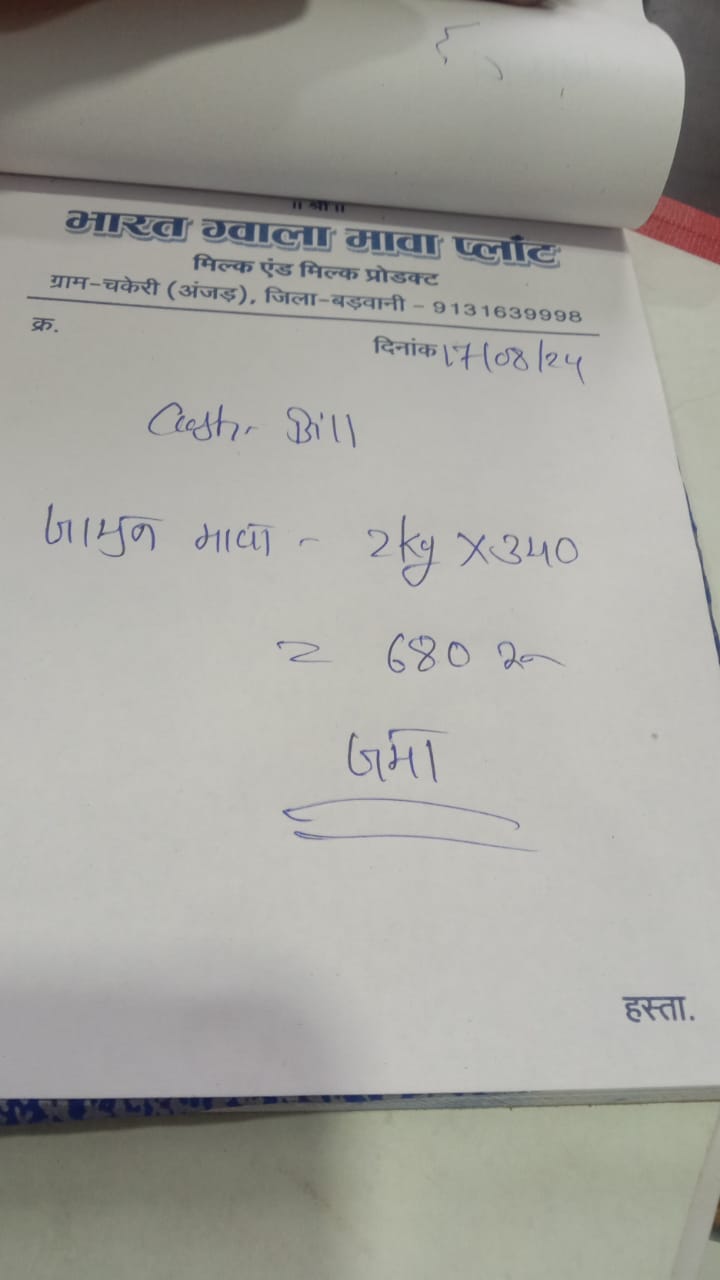 ॥ श्री ॥
भारत ग्वाला मावा प्लांट
मिल्क एंड मिल्क प्रोडक्ट
ग्राम-चकेरी (अंजड़), जिला-बड़वानी - 9131639998
क्र.
दिनांक 17/08/24
Cash Bill
जामुन मावा - 2kg X 340
= 680 रु
जमा
हस्ता.